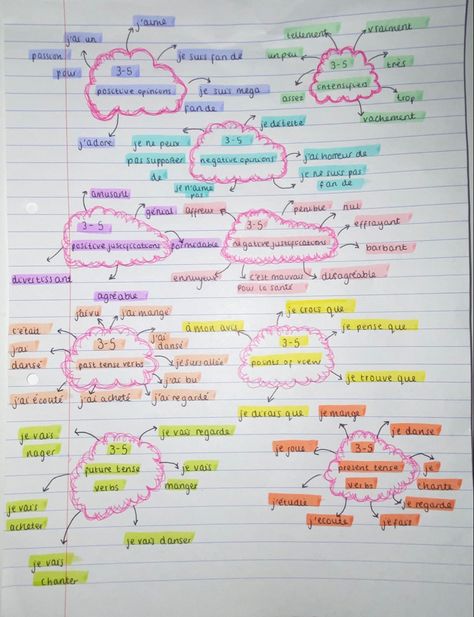 j'aime
j'ai un
passion
pour
je suis fan de
3-5
positive opinions
je suis mega
fan de
j'adore
tellement
vraiment
un peu
3-5
intensifiers
très
assez
trop
vachement
je déteste
je ne peux
pas supporter
de
3-5
negative opinions
j'ai horreur
de
je n'aime
pas
je ne suis pas
fan de
amusant
génial
3-5
positive justifications
formidable
divertissant
agréable
affreux
penible
nul
effrayant
3-5
negative justifications
barbant
ennuyeux
c'est mauvais
pour la santé
désagréable
j'ai vu
j'ai mangé
c'était
j'ai
dansé
3-5
past tense verbs
j'ai
dansé
je suis allée
j'ai bu
j'ai écouté
j'ai acheté
j'ai regardé
je crois que
à mon avis
je pense que
3-5
points of view
je trouve que
je dirais que
je vais
nager
je vais regarde
3-5
future tense
verbs
je vais
manger
je vais
acheter
je vais danser
je vais
chanter
je mange
je danse
je joue
3-5
present tense
verbs
je
chante
j'étudie
je regarde
j'ecoute
je fais